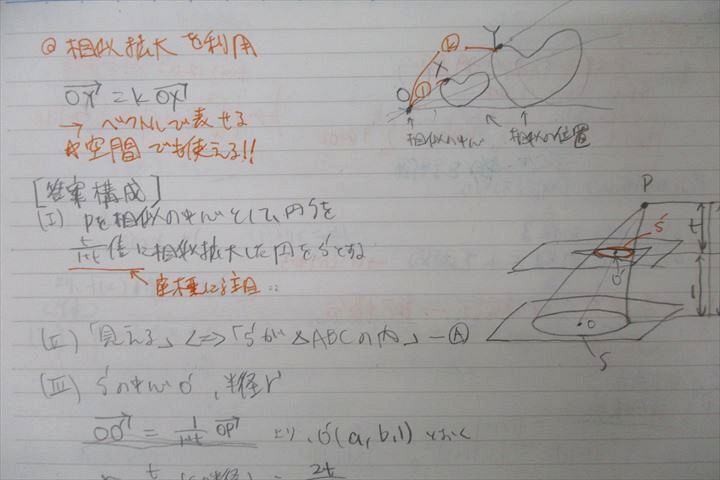 ◎ 相似拡大を利用
OY = k OX
→ ベクトルで表せる
☆空間でも使える!!
k
1
Y
X
O
相似の中心
相似の位置
[答案構成]
(I) Pを相似の中心として、円Sを
t/1+t 倍に相似拡大した円をS'とする
座標に注目‥
(II) 「見える」⇔「S'が△ABCの内」−Ⓐ
(III) S'の中心O', 半径r'
OO' = 1/1+t OP より、O'(a, b, 1) とおく
P
S'
t
O'
1
O
S
2t